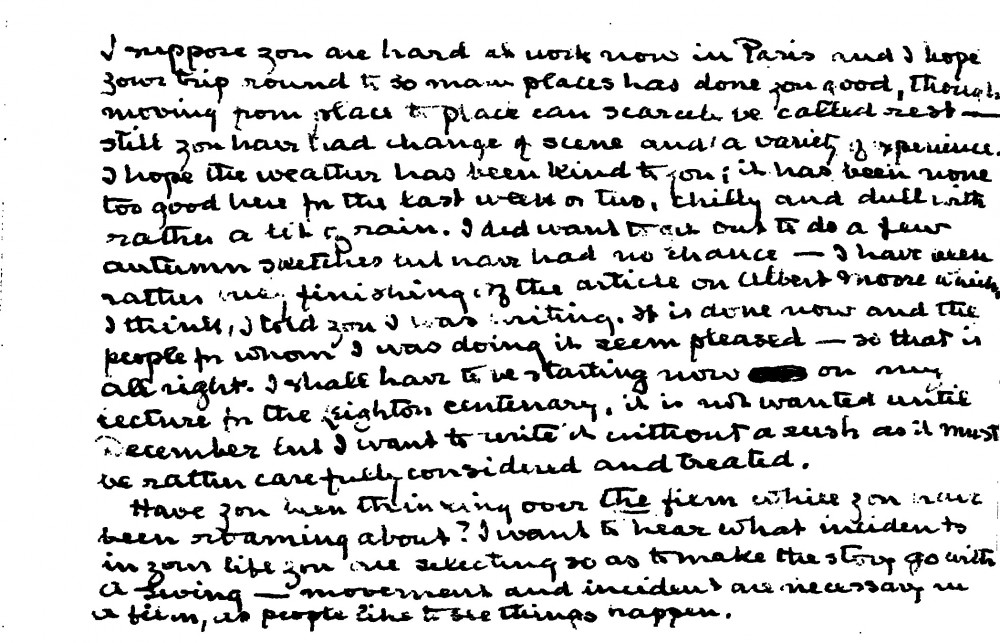 I suppose you are hard at work now in Paris and I hope
your trip round to so many places has done you good, though
moving from place to place can scarcely be called rest —
still you have had change of scene and a variety of experience.
I hope the weather has been kind to you; it has been none
too good here for the last week or two, chilly and dull with
rather a lot of rain. I did want to get out to do a few
autumn sketches but have had no chance — I have been
rather busy finishing off the article on Albert Moore which,
I think, I told you I was writing. It is done now and the
people for whom I was doing it seem pleased — so that is
all right. I shall have to be starting now on my
lecture for the Leighton centenary, it is not wanted until
December but I want to write it without a rush as it must
be rather carefully considered and treated.
Have you been thinking over the film while you have
been roaming about? I want to hear what incidents
in your life you are selecting so as to make the story go with
a swing — movement and incident are necessary in
a film, as people like to see things happen.